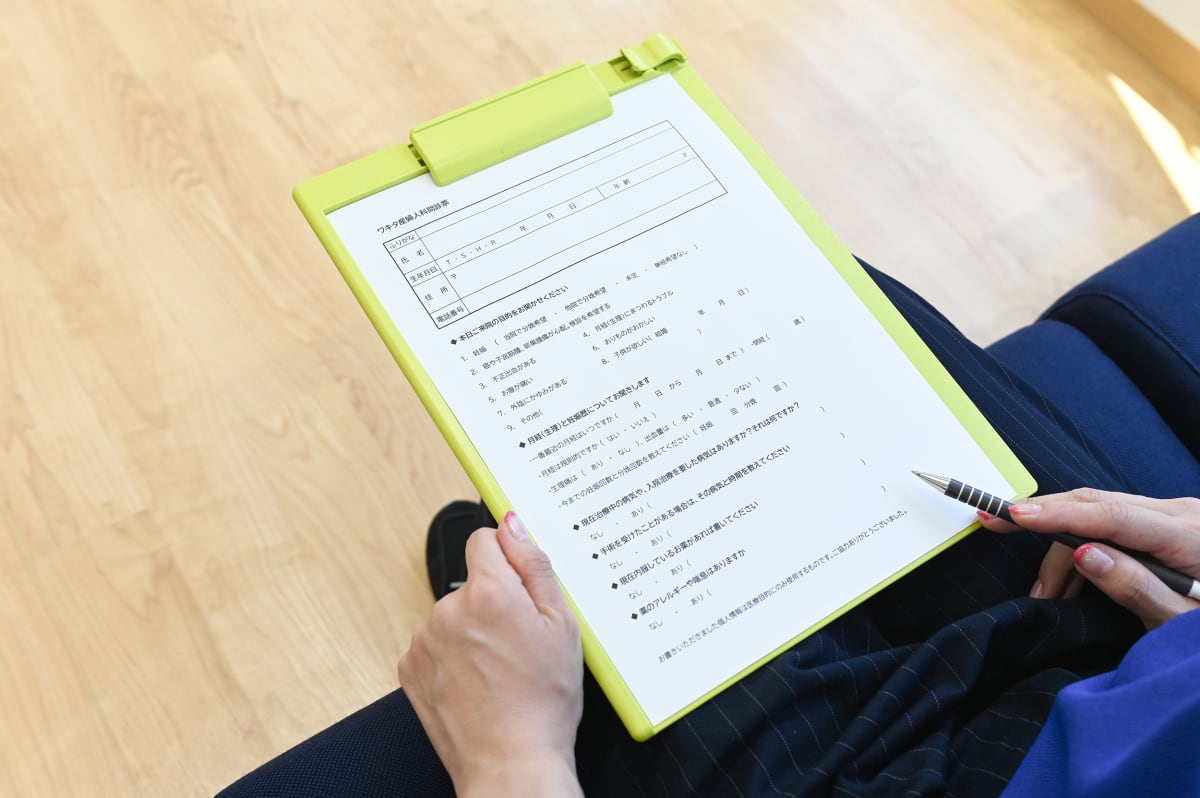 ワキダ産婦人科問診票
ふりがな
氏 名
生年月日 T・S・H・R 年 月 日 年 齢 才
住 所 〒
電話番号
◆ 本日ご来院の目的をお聞かせください
1. 妊娠 ( 当院で分娩希望 ・ 他院で分娩希望 ・ 未定 ・ 継続希望なし )
2. 癌や子宮筋腫、卵巣腫瘍が心配。検診を希望する
3. 不正出血がある 4. 月経(生理)にまつわるトラブル
5. お腹が痛い 6. おりものがおかしい
7. 外陰にかゆみがある 8. 子供が欲しい( 結婚 年 月 日)
9. その他( )
◆ 月経(生理)と妊娠歴についてお聞きします
・一番最近の月経はいつですか( 月 日 から 月 日 まで ) ・閉経( 歳)
・月経は規則的ですか ( はい ・ いいえ )
・生理痛は ( あり ・ なし )、出血量は ( 多い ・ 普通 ・ 少ない )
・今までの妊娠回数と分娩回数を教えてください ( 妊娠 回 分娩 回 )
◆ 現在治療中の病気や、入院治療を要した病気はありますか？それは何ですか？
なし ・ あり ( )
◆ 手術を受けたことがある場合は、その病気と時期を教えてください
なし ・ あり ( )
◆ 現在内服しているお薬があれば書いてください
なし ・ あり ( )
◆ 薬のアレルギーや喘息はありますか
なし ・ あり ( )
お書きいただきました個人情報は医療目的にのみ使用するものです。ご協力ありがとうございました。